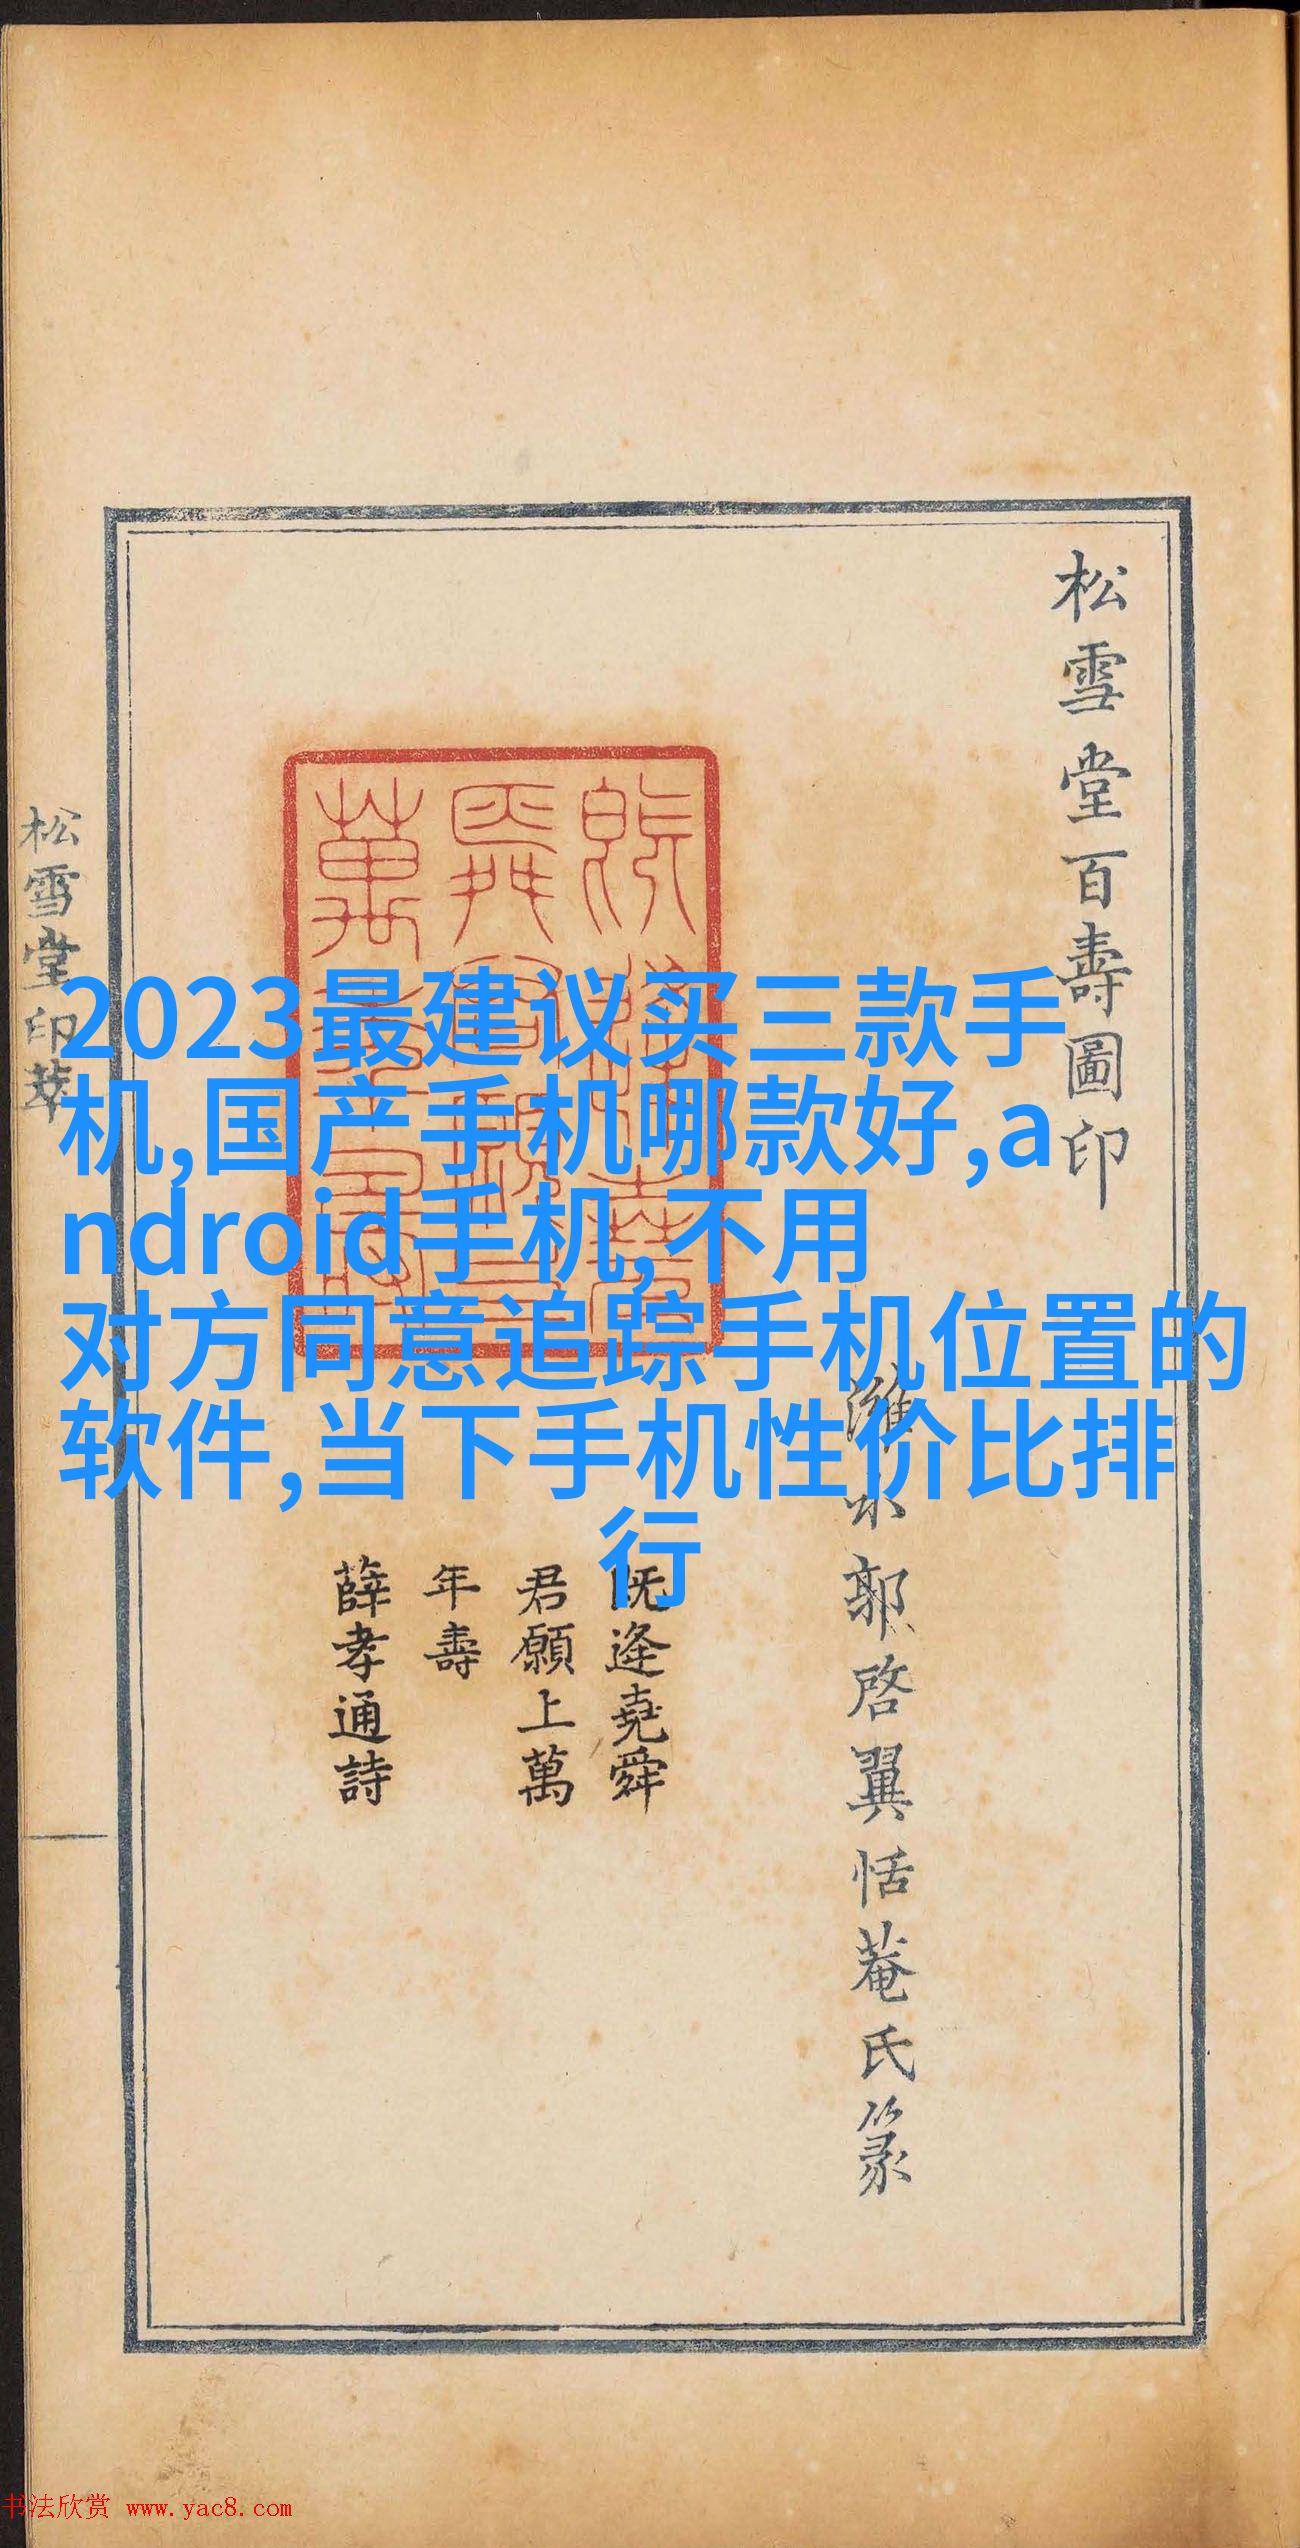 松雪堂百壽圖印
濰水郭啓翼恬菴氏篆
既逢堯舜
君願上萬
年壽
薛孝通詩
松雪堂印萃
2023最建议买三款手
机,国产手机哪款好,a
ndroid手机,不用
对方同意追踪手机位置的
软件,当下手机性价比排
行
书法欣赏 www.yac8.com